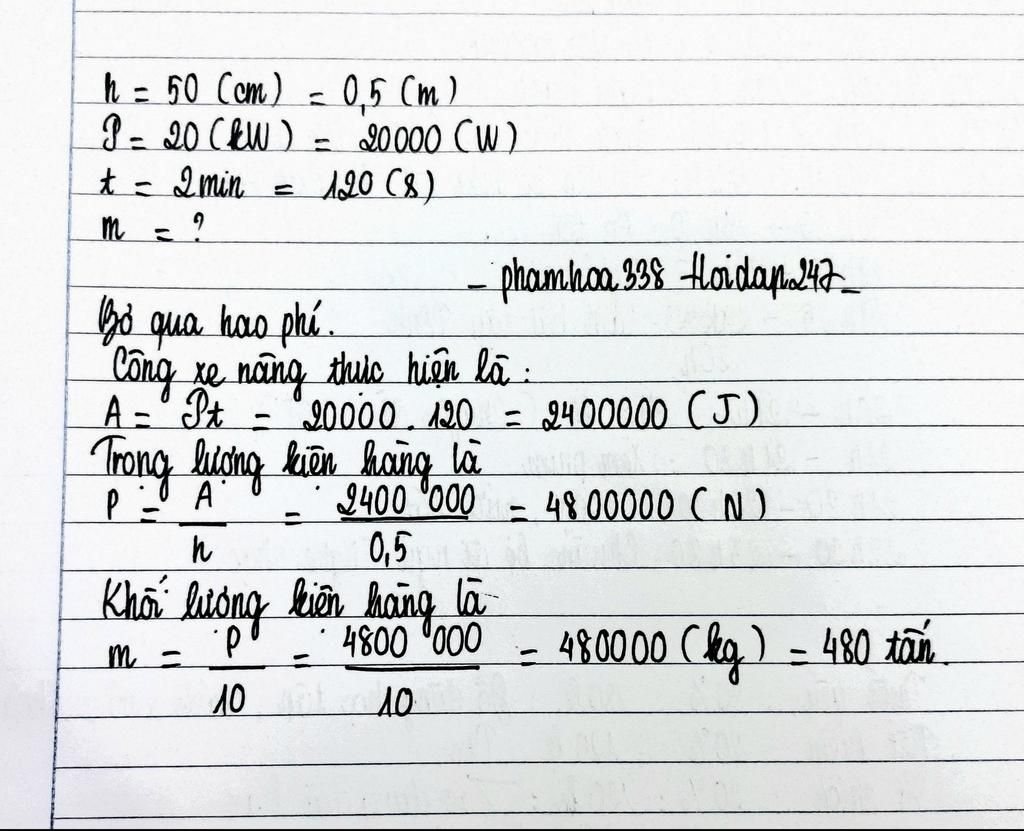 h = 50 (cm) = 0,5 (m)
P = 20 (kW) = 20000 (W)
t = 2min = 120 (s)
m = ?
- phamhoa338 Hoidap247 -
Bỏ qua hao phí.
Công xe nâng thực hiện là :
A = Pt = 20000 . 120 = 2400000 (J)
Trọng lượng kiện hàng là
P = A/h = 2400 000/0,5 = 4800000 (N)
Khối lượng kiện hàng là
m = P/10 = 4800 000/10 = 480000 (kg) = 480 tấn.